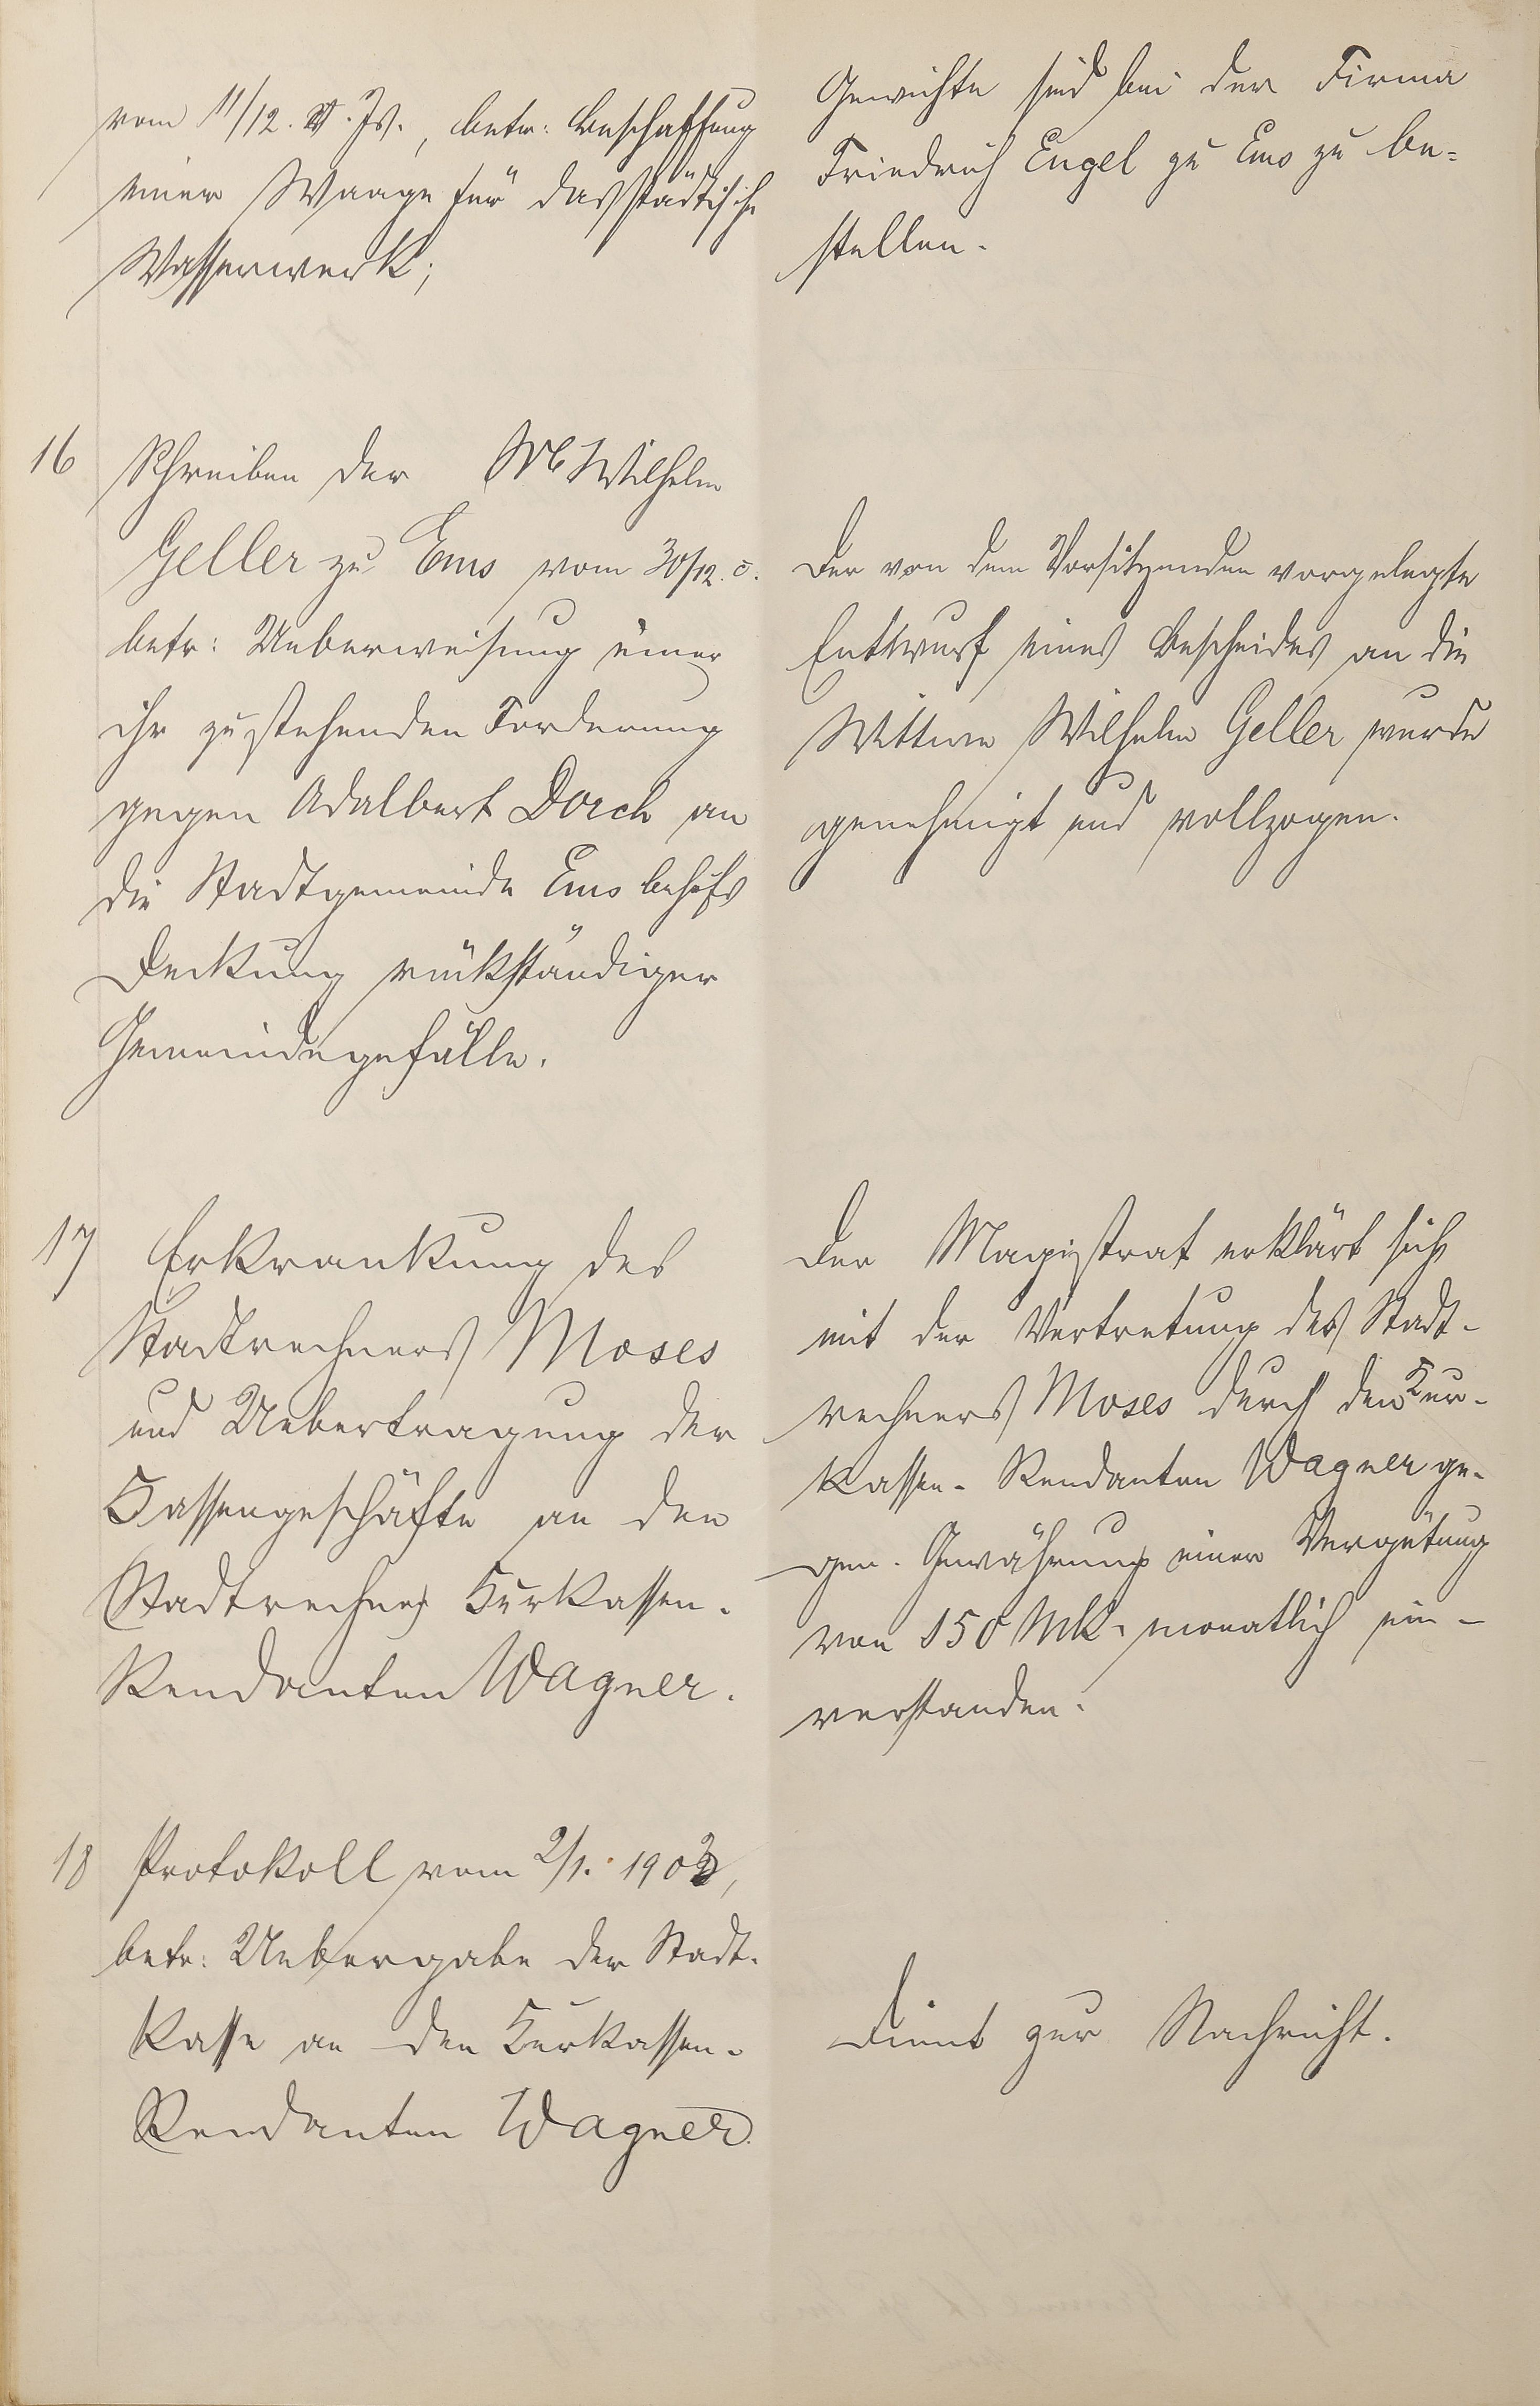 vom 11/12. v. Js., betr: Beschaffung
einer Waage für das städtische
Wasserwerk;
Gewichte sind bei der Firma
Friedrich Engel zu Ems zu be=
stellen.
16
Schreiben der Wb Wilhelm
Geller zu Ems vom 30/12. c.
betr: Ueberweisung einer
ihr zustehenden Forderung
gegen Adalbert Dorch an
die Stadtgemeinde Ems behufs
Deckung rückständiger
Gemeindegefälle.
Der von dem Vorsitzenden vorgelegte
Entwurf eines Bescheides an die
Wittwe Wilhelm Geller wurde
genehmigt und vollzogen.
17
Erkrankung des
Stadtrechners Moses
und Uebertragung der
Kassengeschäfte an den
Stadtrechner Kurkassen-
Rendanten Wagner.
Der Magistrat erklärt sich
mit der Vertretung des Stadt-
rechners Moses durch den Kur-
kassen-Rendanten Wagner ge-
gen Gewährung einer Vergütung
von 150 Mk. monatlich ein-
verstanden.
18
Protokoll vom 2/1. 1903,
betr: Uebergabe der Stadt-
kasse an den Kurkassen-
Rendanten Wagner.
Dient zur Nachricht.